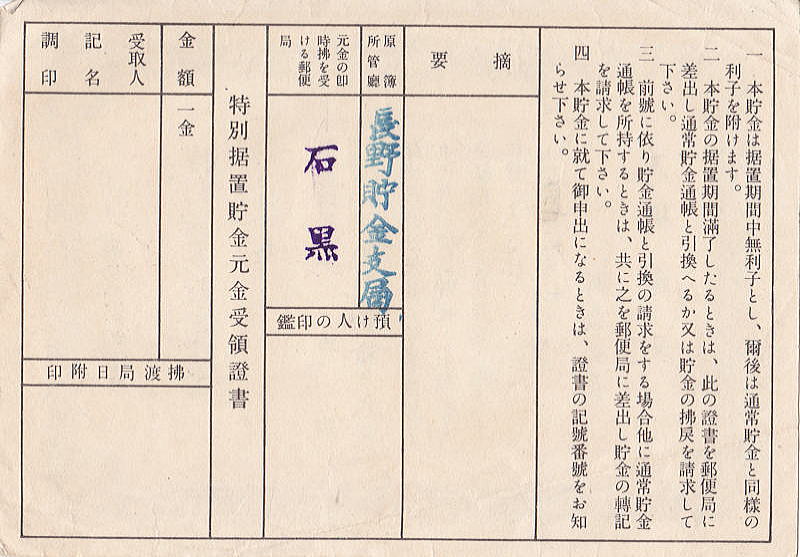 一 本貯金は据置期間中無利子とし、爾後は通常貯金と同樣の
利子を附けます。
二 本貯金の据置期間滿了したるときは、此の證書を郵便局に
差出し通常貯金通帳と引換へるか又は貯金の拂戻を請求して
下さい。
三 前號に依り貯金通帳と引換の請求をする場合他に通常貯金
通帳を所持するときは、共に之を郵便局に差出し貯金の轉記
を請求して下さい。
四 本貯金に就て御申出になるときは、證書の記號番號をお知
らせ下さい。
摘要
原簿
所管廳
長野貯金支局
元金の卽
時拂を受
ける郵便
局
石黒
預け人の印鑑
特別据置貯金元金受領證書
金額
一金
受取人
記名
調印
拂渡局日附印